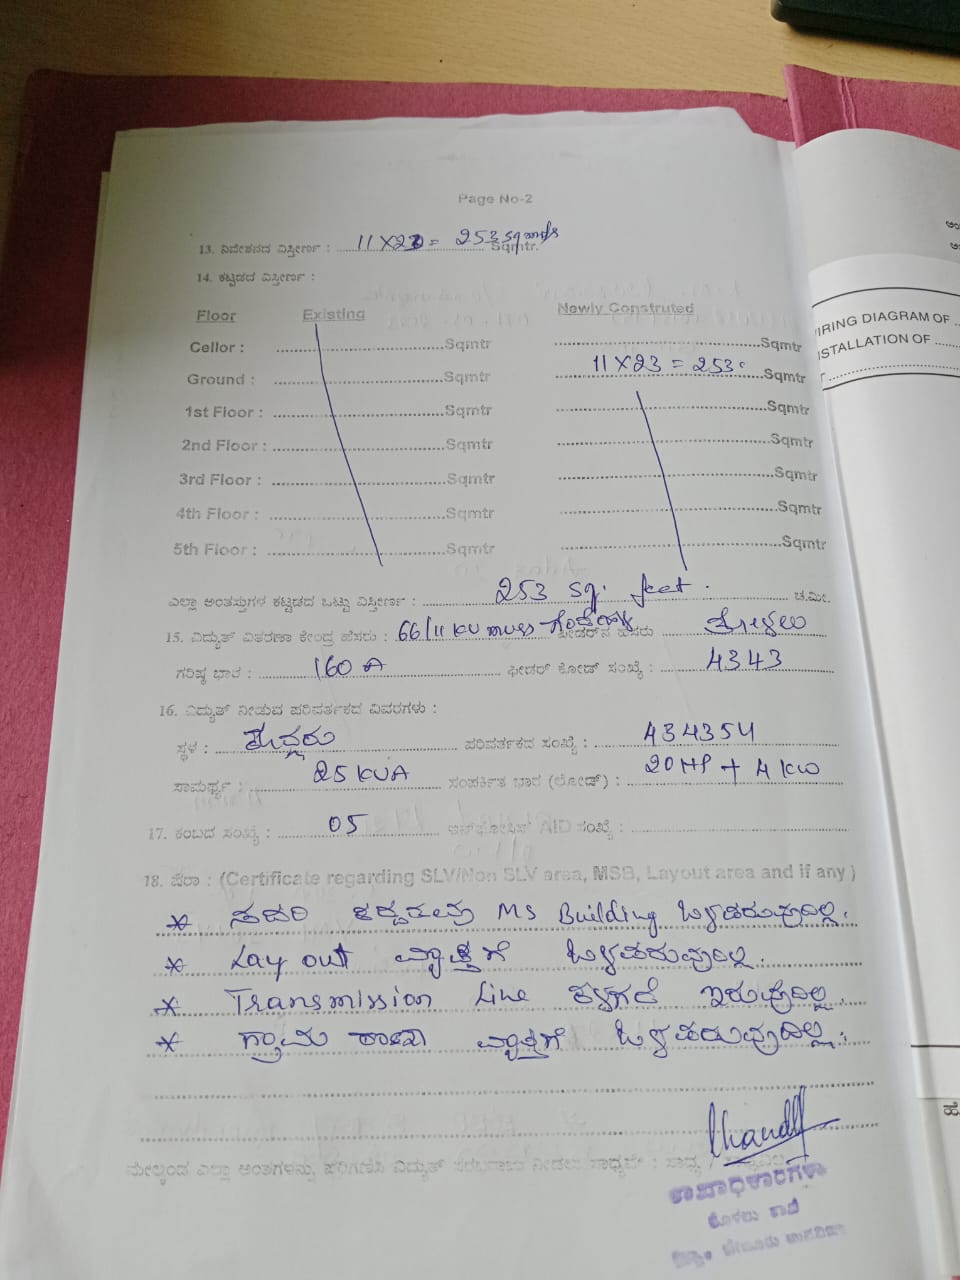 Page No-2
13. ನಿವೇಶನದ ವಿಸ್ತೀರ್ಣ : 11 X 23 = 253 Sqmtr.
14. ಕಟ್ಟಡದ ವಿಸ್ತೀರ್ಣ :
Floor Existing Newly Construted
Cellor : Sqmtr Sqmtr
Ground : Sqmtr 11 X 23 = 253 Sqmtr
1st Floor : Sqmtr Sqmtr
2nd Floor : Sqmtr Sqmtr
3rd Floor : Sqmtr Sqmtr
4th Floor : Sqmtr Sqmtr
5th Floor : Sqmtr Sqmtr
ಎಲ್ಲಾ ಅಂತಸ್ತುಗಳ ಕಟ್ಟಡದ ಒಟ್ಟು ವಿಸ್ತೀರ್ಣ : 253 sq. feet. ಚ.ಮೀ.
15. ವಿದ್ಯುತ್ ವಿತರಣಾ ಕೇಂದ್ರ ಹೆಸರು : 66/11 KV muss ಫೀಡರ್‌ನ ಹೆಸರು
ಗರಿಷ್ಠ ಭಾರ : 160 A ಫೀಡರ್ ಕೋಡ್ ಸಂಖ್ಯೆ : 4343
16. ವಿದ್ಯುತ್ ನೀಡುವ ಪರಿವರ್ತಕದ ವಿವರಗಳು :
ಸ್ಥಳ : ಪರಿವರ್ತಕದ ಸಂಖ್ಯೆ :
ಸಾಮರ್ಥ್ಯ : 25 KVA ಸಂಪರ್ಕಿತ ಭಾರ (ಲೋಡ್) : 20 HP + 4 KW
17. ಕಂಬದ ಸಂಖ್ಯೆ : 05 AID ಸಂಖ್ಯೆ :
18. ಷರಾ : (Certificate regarding SLV/Non SLV area, MSB, Layout area and if any )
* ಸದರಿ ಕಟ್ಟಡವು MS Building ಒಳಪಡುವುದಿಲ್ಲ.
* Lay out ವ್ಯಾಪ್ತಿಗೆ ಒಳಪಡುವುದಿಲ್ಲ.
* Transmission Line ಕೆಳಗಡೆ ಇರುವುದಿಲ್ಲ.
* ಗ್ರಾಮ ಠಾಣಾ ವ್ಯಾಪ್ತಿಗೆ ಒಳಪಡುವುದಿಲ್ಲ.
ಮೇಲ್ಕಂಡ ಎಲ್ಲಾ ಅಂಶಗಳನ್ನು ಪರಿಗಣಿಸಿ ವಿದ್ಯುತ್ ಸರಬರಾಜು ನೀಡಲು ಸಾಧ್ಯ : ಸಾಧ್ಯ /
ಶಾಖಾಧಿಕಾರಿಗಳು
WIRING DIAGRAM OF
INSTALLATION OF